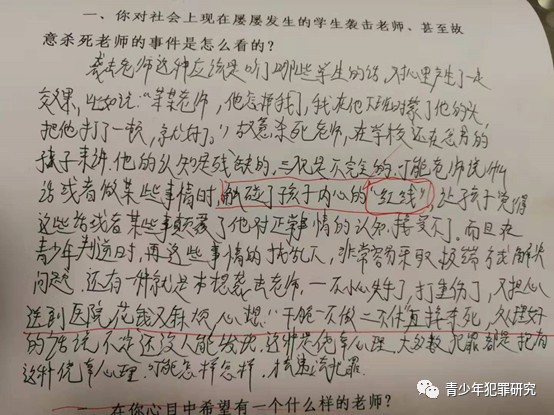 一、你对社会上现在屡屡发生的学生袭击老师、甚至故
意杀死老师的事件是怎么看的？
袭击老师这种应该是听了哪些学生的话，对心里产生了一定
效果，比如说："某某老师，他怎样我了，我在他下班的时候蒙了他的头，
把他打了一顿， 。"故意杀死老师，在学校还在念书的
孩子来讲，他的认知是残缺的，三观是不完全的，可能老师说什么
话或者做某些事情时，触碰了孩子内心的"红线"，让孩子觉得
这些话或者某些事颠覆了他对正常事情的认知，接受不了。而且在
青少年叛逆时，再这些事情的扰乱下，非常容易采取极端方式解决
问题。还有一种就是本想袭击老师，一不小心失手了，打重伤了，又担心
送到医院花钱又麻烦，心想："干脆一不做二不休直接杀死，处理好
的话说不定还没人能发现。这种是侥幸心理，大多数犯罪都是抱有
这种侥幸心理，可能怎样怎样，才去违法犯罪。
一、在你心目中希望有一个什么样的老师？
青少年犯罪研究